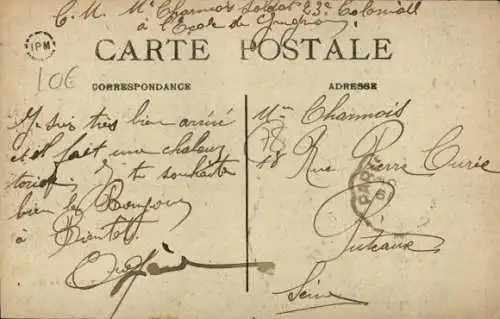 C. M. Mr Charmois Soldat 23e Colonial
à l'École de Grignon
IPM
CARTE POSTALE
10€
CORRESPONDANCE
Je suis très bien arrivé
et il fait une chaleur
je te souhaite
bien le Bonjour
à Bientôt
ADRESSE
Mme Charmois
18 Rue Pierre Curie
PARIS
Puteaux
Seine